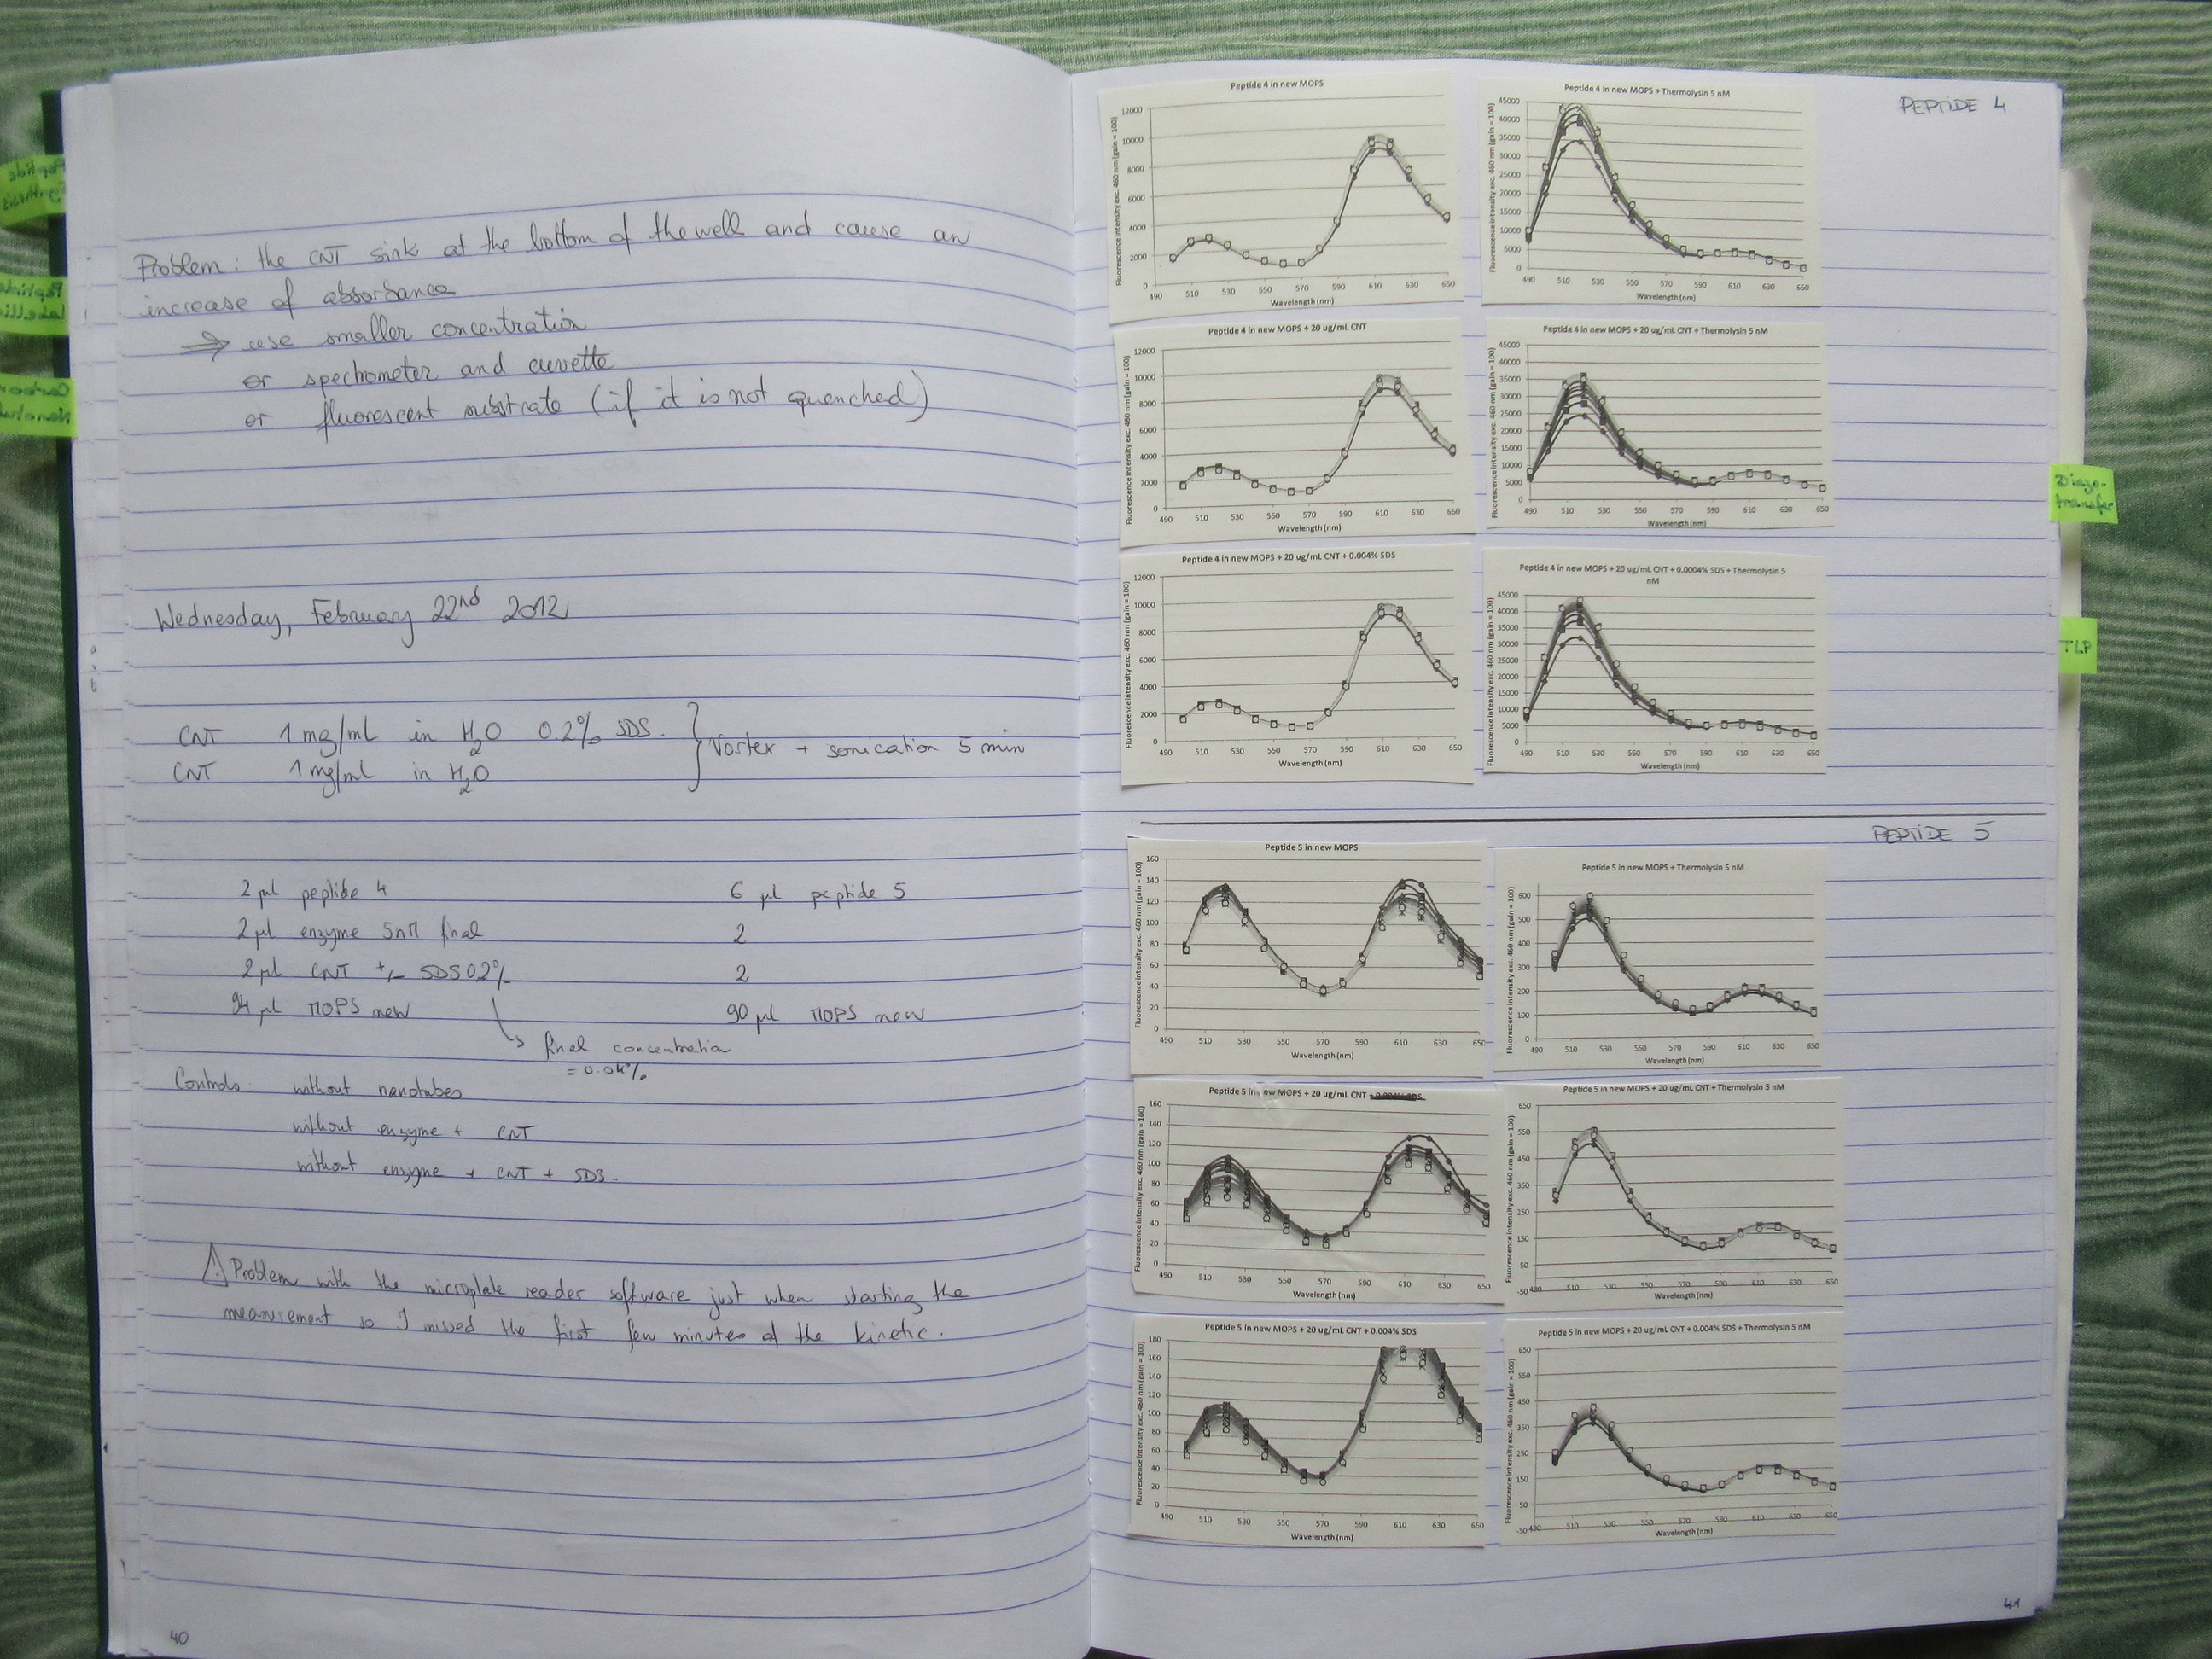 Problem : the CNT sink at the bottom of the well and cause an
increase of absorbance
⇒ use smaller concentration
or spectrometer and cuvette
or fluorescent substrate (if it is not quenched)
Wednesday, February 22nd 2012
CNT 1 mg/mL in H2O 0.2% SDS.
CNT 1 mg/mL in H2O
} Vortex + sonication 5 min
2 µl peptide 4 6 µl peptide 5
2 µl enzyme 5nM final 2
2 µl CNT +/- SDS 0.2% 2
94 µl MOPS new 90 µl MOPS new
↳ final concentration
= 0.04%
Controls: without nanotubes
without enzyme + CNT
without enzyme + CNT + SDS.
⚠ Problem with the microplate reader software just when starting the
measurement so I missed the first few minutes of the kinetic.
40
PEPTIDE 4
Peptide 4 in new MOPS
Fluorescence intensity exc. 460 nm (gain = 100)
12000
10000
8000
6000
4000
2000
0
490 510 530 550 570 590 610 630 650
Wavelength (nm)
Peptide 4 in new MOPS + Thermolysin 5 nM
Fluorescence intensity exc. 460 nm (gain = 100)
45000
40000
35000
30000
25000
20000
15000
10000
5000
0
490 510 530 550 570 590 610 630 650
Wavelength (nm)
Peptide 4 in new MOPS + 20 ug/mL CNT
Fluorescence intensity exc. 460 nm (gain = 100)
12000
10000
8000
6000
4000
2000
0
490 510 530 550 570 590 610 630 650
Wavelength (nm)
Peptide 4 in new MOPS + 20 ug/mL CNT + Thermolysin 5 nM
Fluorescence intensity exc. 460 nm (gain = 100)
45000
40000
35000
30000
25000
20000
15000
10000
5000
0
490 510 530 550 570 590 610 630 650
Wavelength (nm)
Peptide 4 in new MOPS + 20 ug/mL CNT + 0.004% SDS
Fluorescence intensity exc. 460 nm (gain = 100)
12000
10000
8000
6000
4000
2000
0
490 510 530 550 570 590 610 630 650
Wavelength (nm)
Peptide 4 in new MOPS + 20 ug/mL CNT + 0.0004% SDS + Thermolysin 5
nM
Fluorescence intensity exc. 460 nm (gain = 100)
45000
40000
35000
30000
25000
20000
15000
10000
5000
0
490 510 530 550 570 590 610 630 650
Wavelength (nm)
PEPTIDE 5
Peptide 5 in new MOPS
Fluorescence intensity exc. 460 nm (gain = 100)
160
140
120
100
80
60
40
20
0
490 510 530 550 570 590 610 630 650
Wavelength (nm)
Peptide 5 in new MOPS + Thermolysin 5 nM
Fluorescence intensity exc. 460 nm (gain = 100)
600
500
400
300
200
100
0
490 510 530 550 570 590 610 630 650
Wavelength (nm)
Peptide 5 in new MOPS + 20 ug/mL CNT + 0.004% SDS
Fluorescence intensity exc. 460 nm (gain = 100)
160
140
120
100
80
60
40
20
0
490 510 530 550 570 590 610 630 650
Wavelength (nm)
Peptide 5 in new MOPS + 20 ug/mL CNT + Thermolysin 5 nM
Fluorescence intensity exc. 460 nm (gain = 100)
650
550
450
350
250
150
50
-50
490 510 530 550 570 590 610 630 650
Wavelength (nm)
Peptide 5 in new MOPS + 20 ug/mL CNT + 0.004% SDS
Fluorescence intensity exc. 460 nm (gain = 100)
180
160
140
120
100
80
60
40
20
0
490 510 530 550 570 590 610 630 650
Wavelength (nm)
Peptide 5 in new MOPS + 20 ug/mL CNT + 0.004% SDS + Thermolysin 5 nM
Fluorescence intensity exc. 460 nm (gain = 100)
650
550
450
350
250
150
50
-50
490 510 530 550 570 590 610 630 650
Wavelength (nm)
41
Diazo-
transfer
TLP
Peptide
Synthesis
Peptide